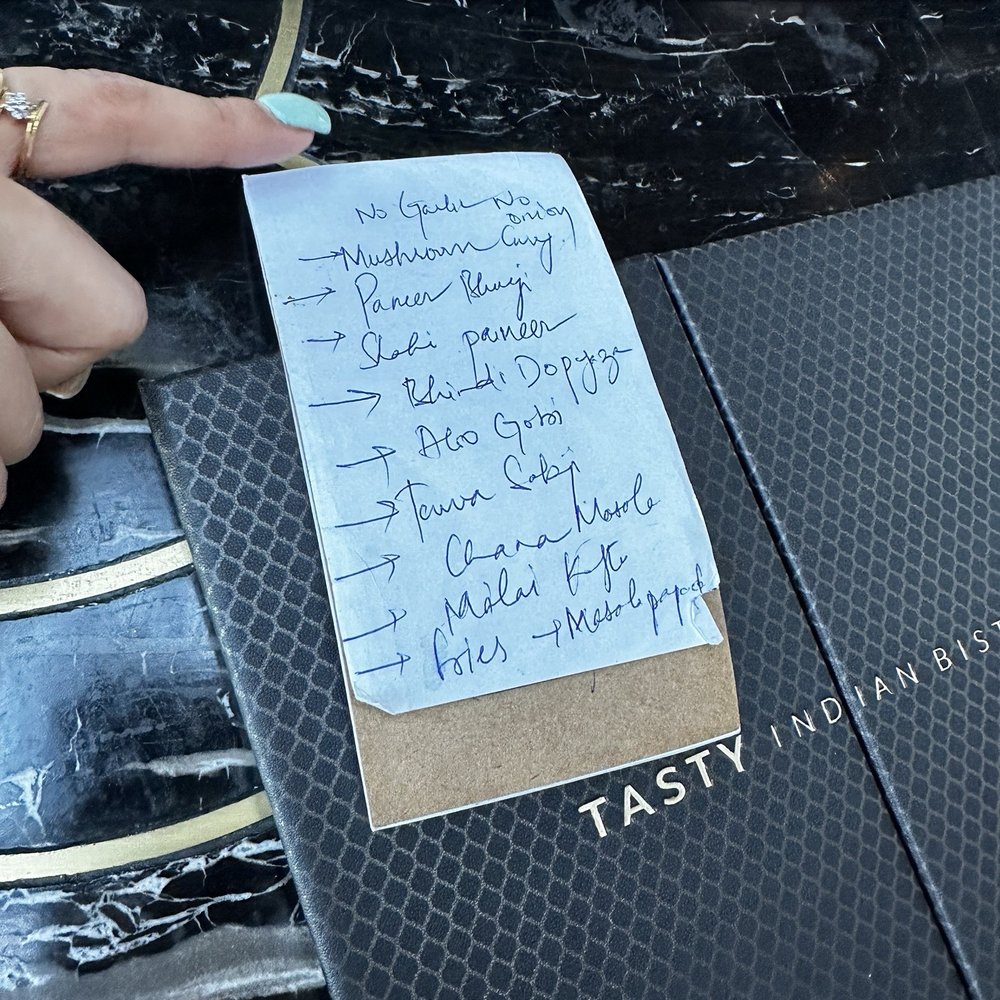 No Garlic No
onion
→ Mushroom Curry
→ Paneer Bhurji
→ Shahi paneer
→ Bhindi Dopyaza
→ Aloo Gobi
→ Tawa Sabji
→ Chana Masala
→ Malai Kofta
→ fries → Masala papad
TASTY INDIAN BIST